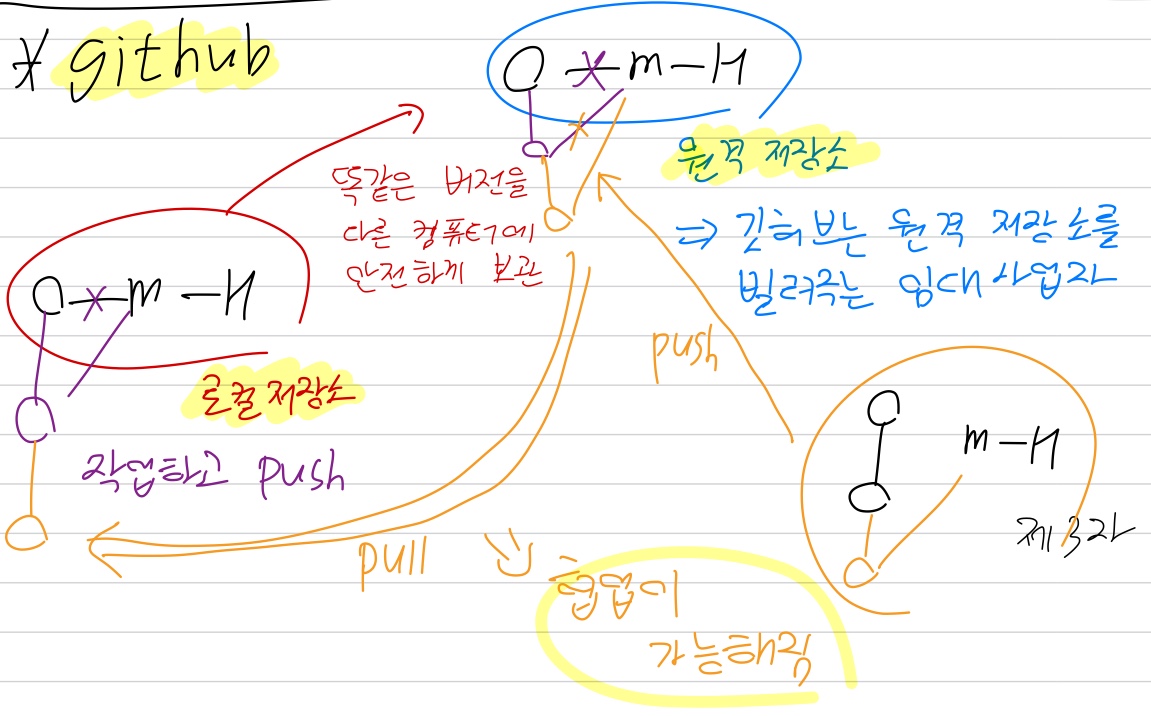 * github
m-H
원격 저장소
똑같은 버전을
다른 컴퓨터에
안전하게 보관
⇒ 깃허브는 원격 저장소를
빌려주는 임대 사업자
m-H
로컬 저장소
작업하고 push
push
m-H
제 3자
pull
협업이
가능해짐